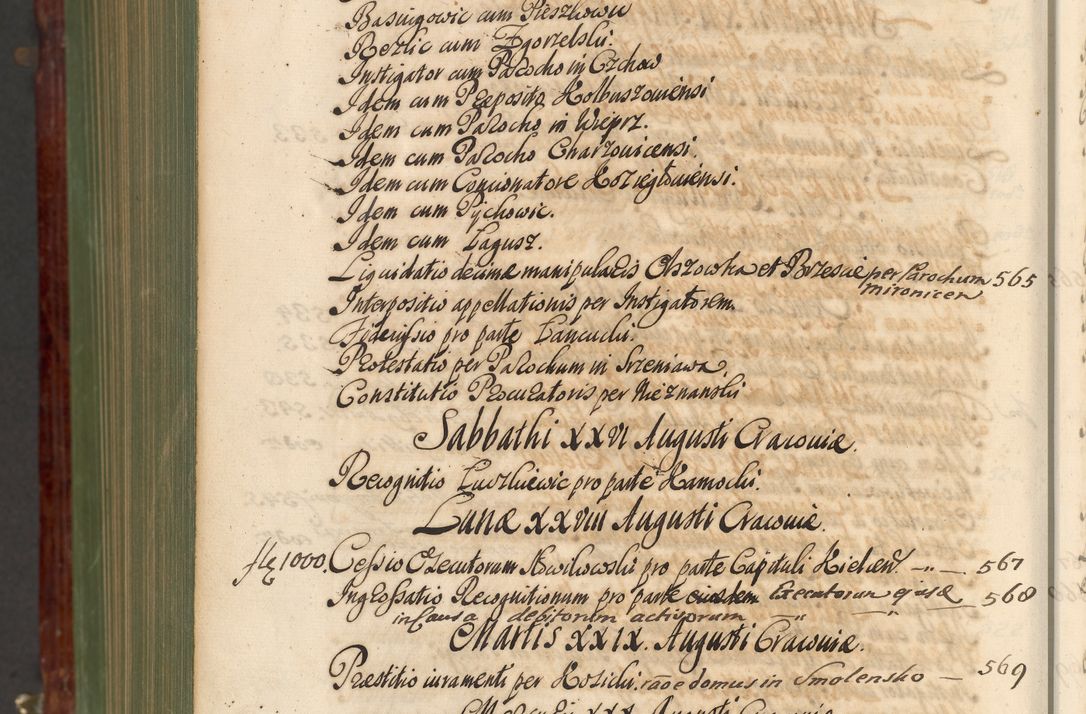 Basingowic cum Pieszkowu
Rezlic cum Zgorzelski.
Instigator cum Parocho in Czchow
Idem cum Præposito Kolbuszoviensi
Idem cum Parocho in Wieprz.
Idem cum Parocho Charzovicensi.
Idem cum Concionatore Koziegłoviensi.
Idem cum Pÿchowic.
Idem cum Łagusz.
Liquidatio decimæ manipularis Olszowka et Brzescie per Parochum 565
mironicen
Interpositio appellationis per Instigatorem.
Fideiussio pro parte Łancucki.
Protestatio per Parochum in Srzeniawa.
Constitutio Procuratoris per Nieznanski
Sabbathi XXVI Augusti Cracoviæ.
Recognitio Luszkiewic pro parte Kamocki.
Lunæ XXVIII Augusti Cracoviæ.
flę 1000. Cessio Execut­orum Nowilowski pro parte Capituli Kielcen. -"- 567
Ingrossatio Recognitionum pro parte eiusdem Executorum ejusd 568
in Causa debitorum activorum " "
Martis XXIX. Augusti Cracoviæ.
Præstitio iuramenti per Kosicki. raõe domus in Smolensko - 569